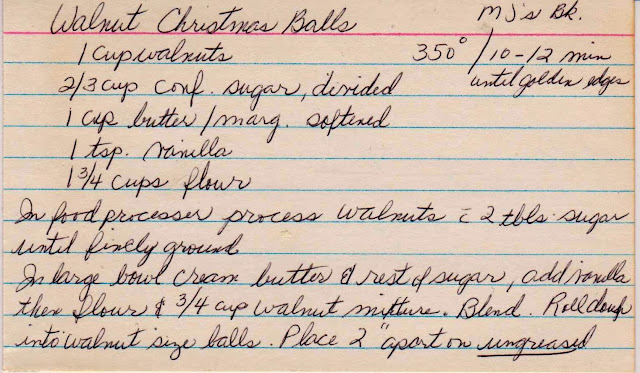 Walnut Christmas Balls MJ's Bk.
1 cup walnuts 350° / 10-12 min
2/3 cup conf. sugar, divided until golden edges
1 cup butter/marg. softened
1 tsp. vanilla
1 3/4 cups flour
In food processer process walnuts c̄ 2 tbls. sugar
until finely ground
In large bowl cream butter & rest of sugar, add vanilla
then flour & 3/4 cup walnut mixture. Blend. Roll dough
into walnut size balls. Place 2" apart on ungreased